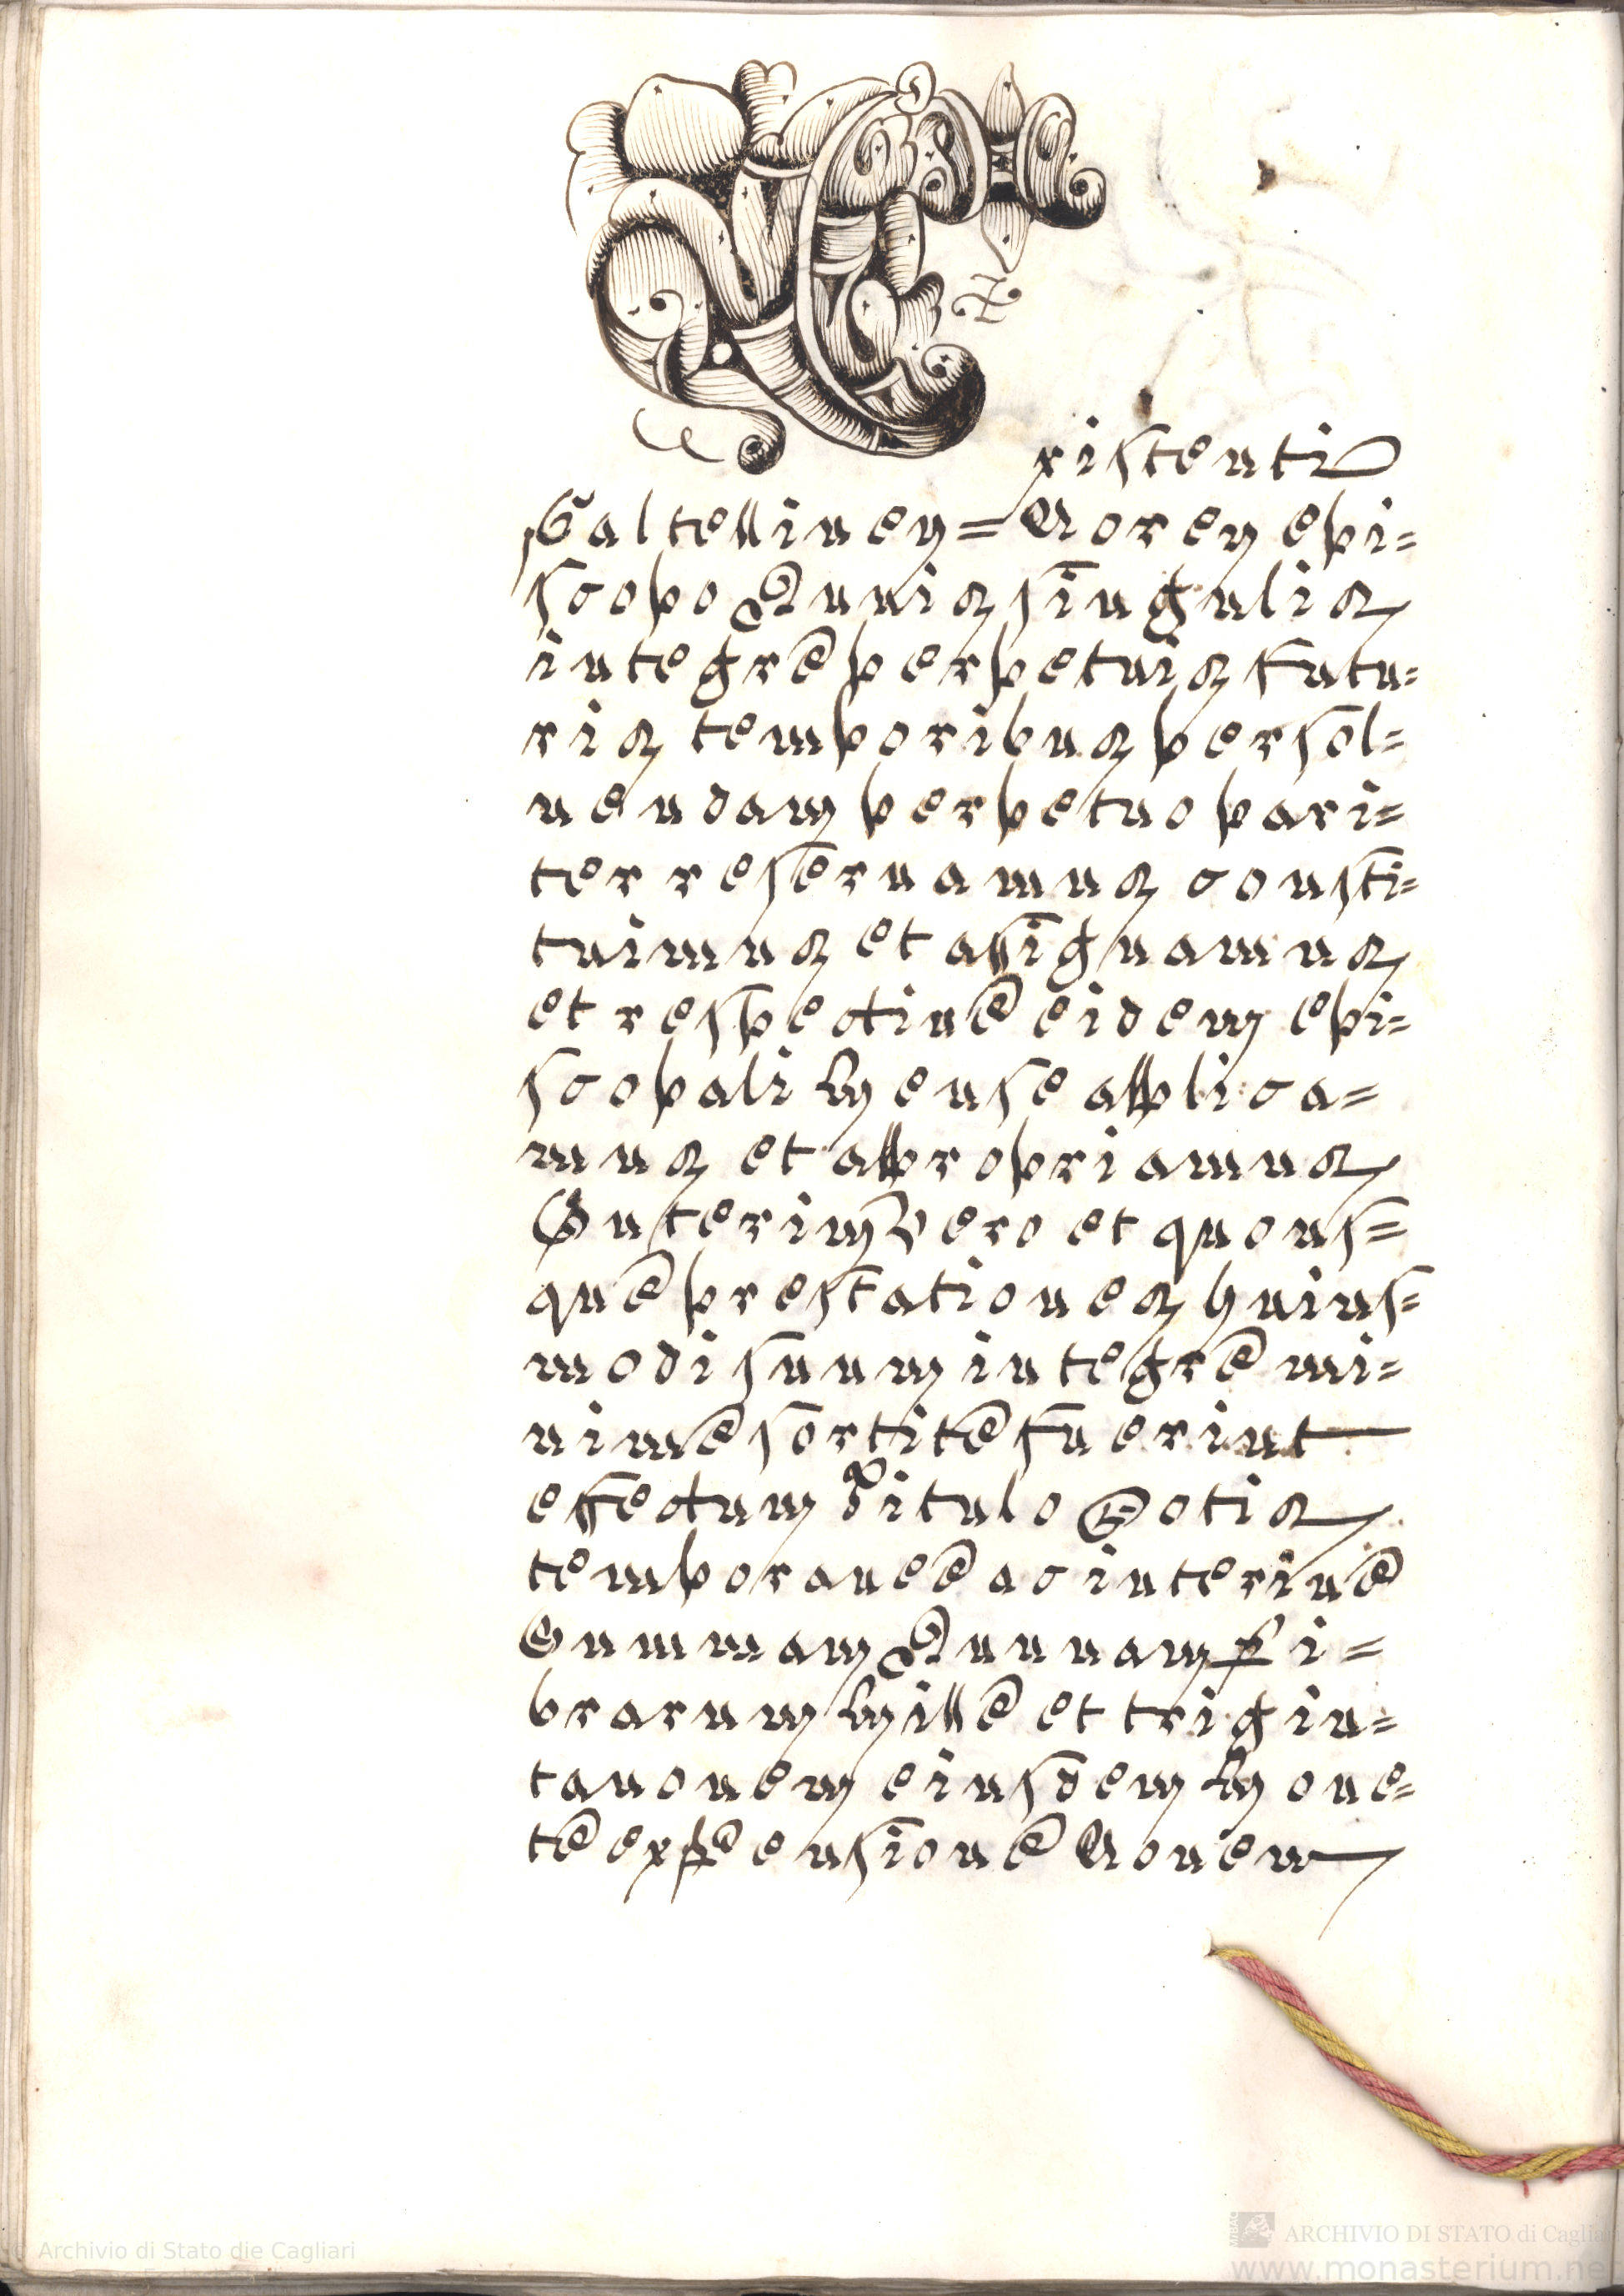 Existenti
Galtellinen=Noren epi=
scopo Annis singulis
integre perpetuis futu=
ris temporibus persol=
uendam perpetuo pari=
ter reseruamus consti=
tuimus et assignamus
et respectiue eidem epi=
scopali Mense applica=
mus et appropriamus
Interim Vero et quous=
que prestationes huius=
modi suum integre mi=
nime sortite fuerint
effectum Titulo Dotis
temporanee ac interine
Summam Annuam Li=
brarum Mille et trigin=
ta nouem eiusdem Mone=
te ex pensione Nouem
© Archivio di Stato die Cagliari
ARCHIVIO DI STATO di Caglia
www.monasterium.ne